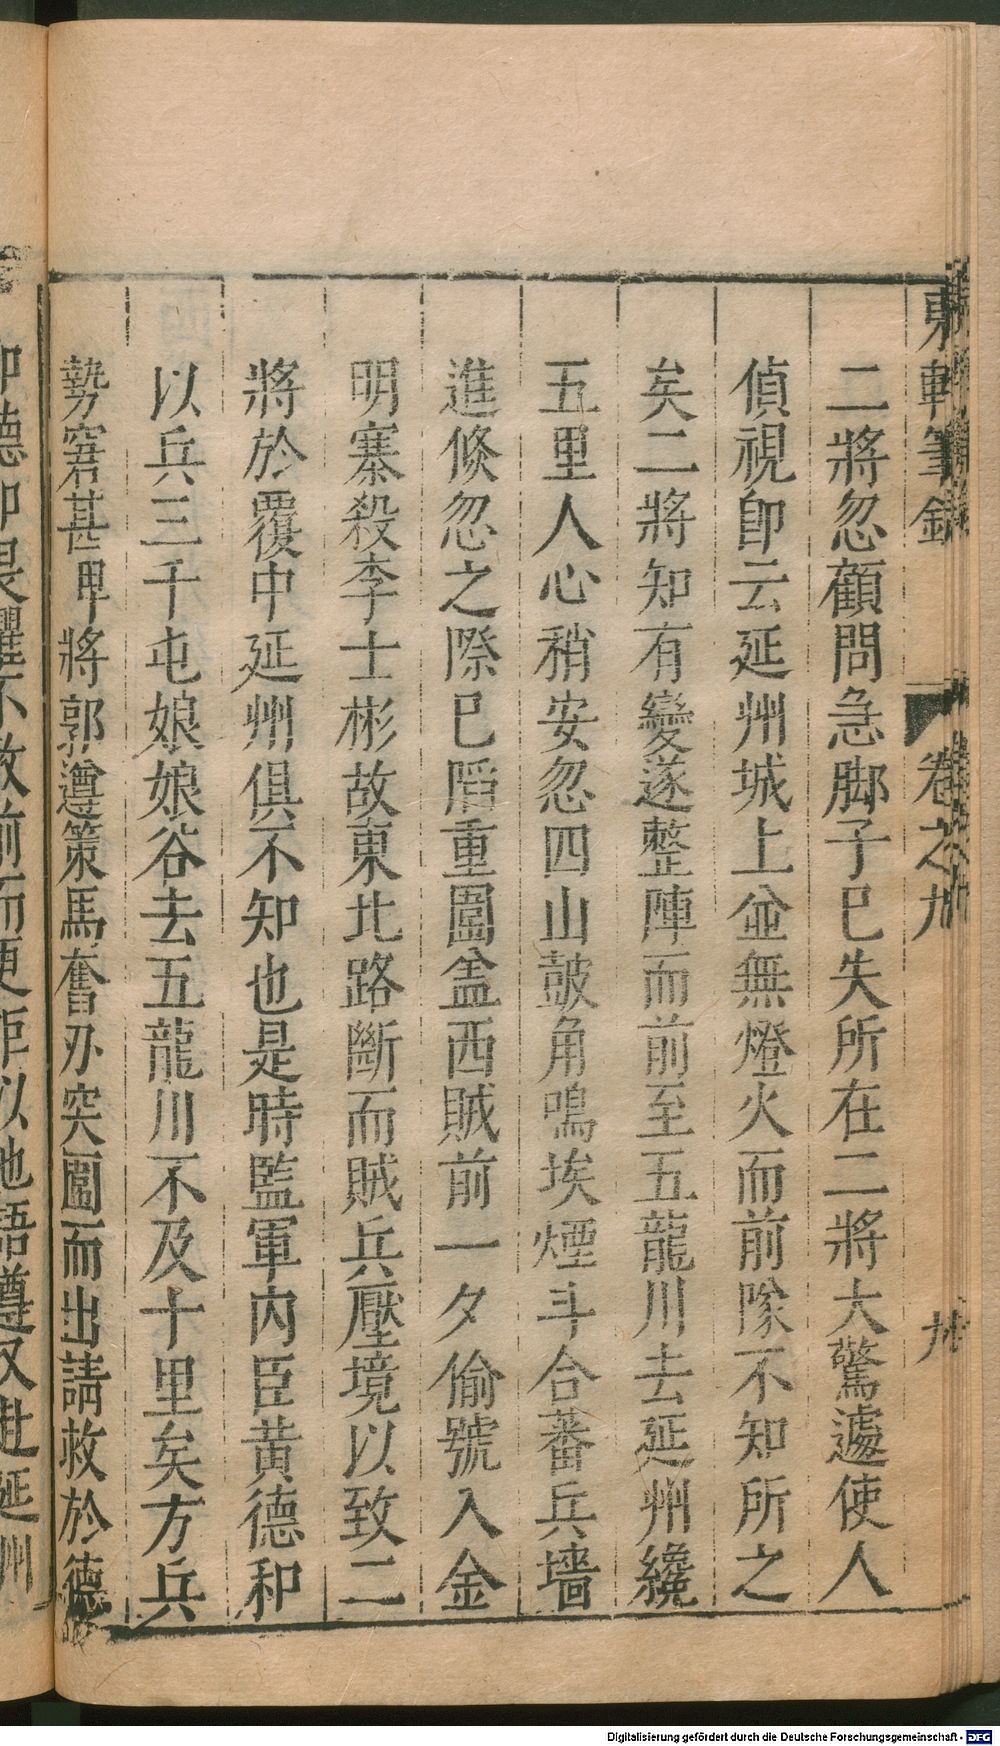 東軒筆錄 卷之九
二將忽顧問急脚子巳失所在二將大驚遽使人
偵視卽云延州城上並無燈火而前隊不知所之
矣二將知有變遂整陣而前至五龍川去延州纔
五里人心稍安忽四山鼓角鳴埃煙斗合蕃兵墻
進倐忽之際巳陷重圍盖西賊前一夕偷號入金
明寨殺李士彬故東北路斷而賊兵壓境以致二
將於覆中延州俱不知也是時監軍內臣黃德和
以兵三千屯娘娘谷去五龍川不及十里矣方兵
勢窘甚裨將郭遵策馬奮刃突圍而出請救於德
和德和畏懼不敢前而更拒以他語遵又赴延州
Digitalisierung gefördert durch die Deutsche Forschungsgemeinschaft - DFG